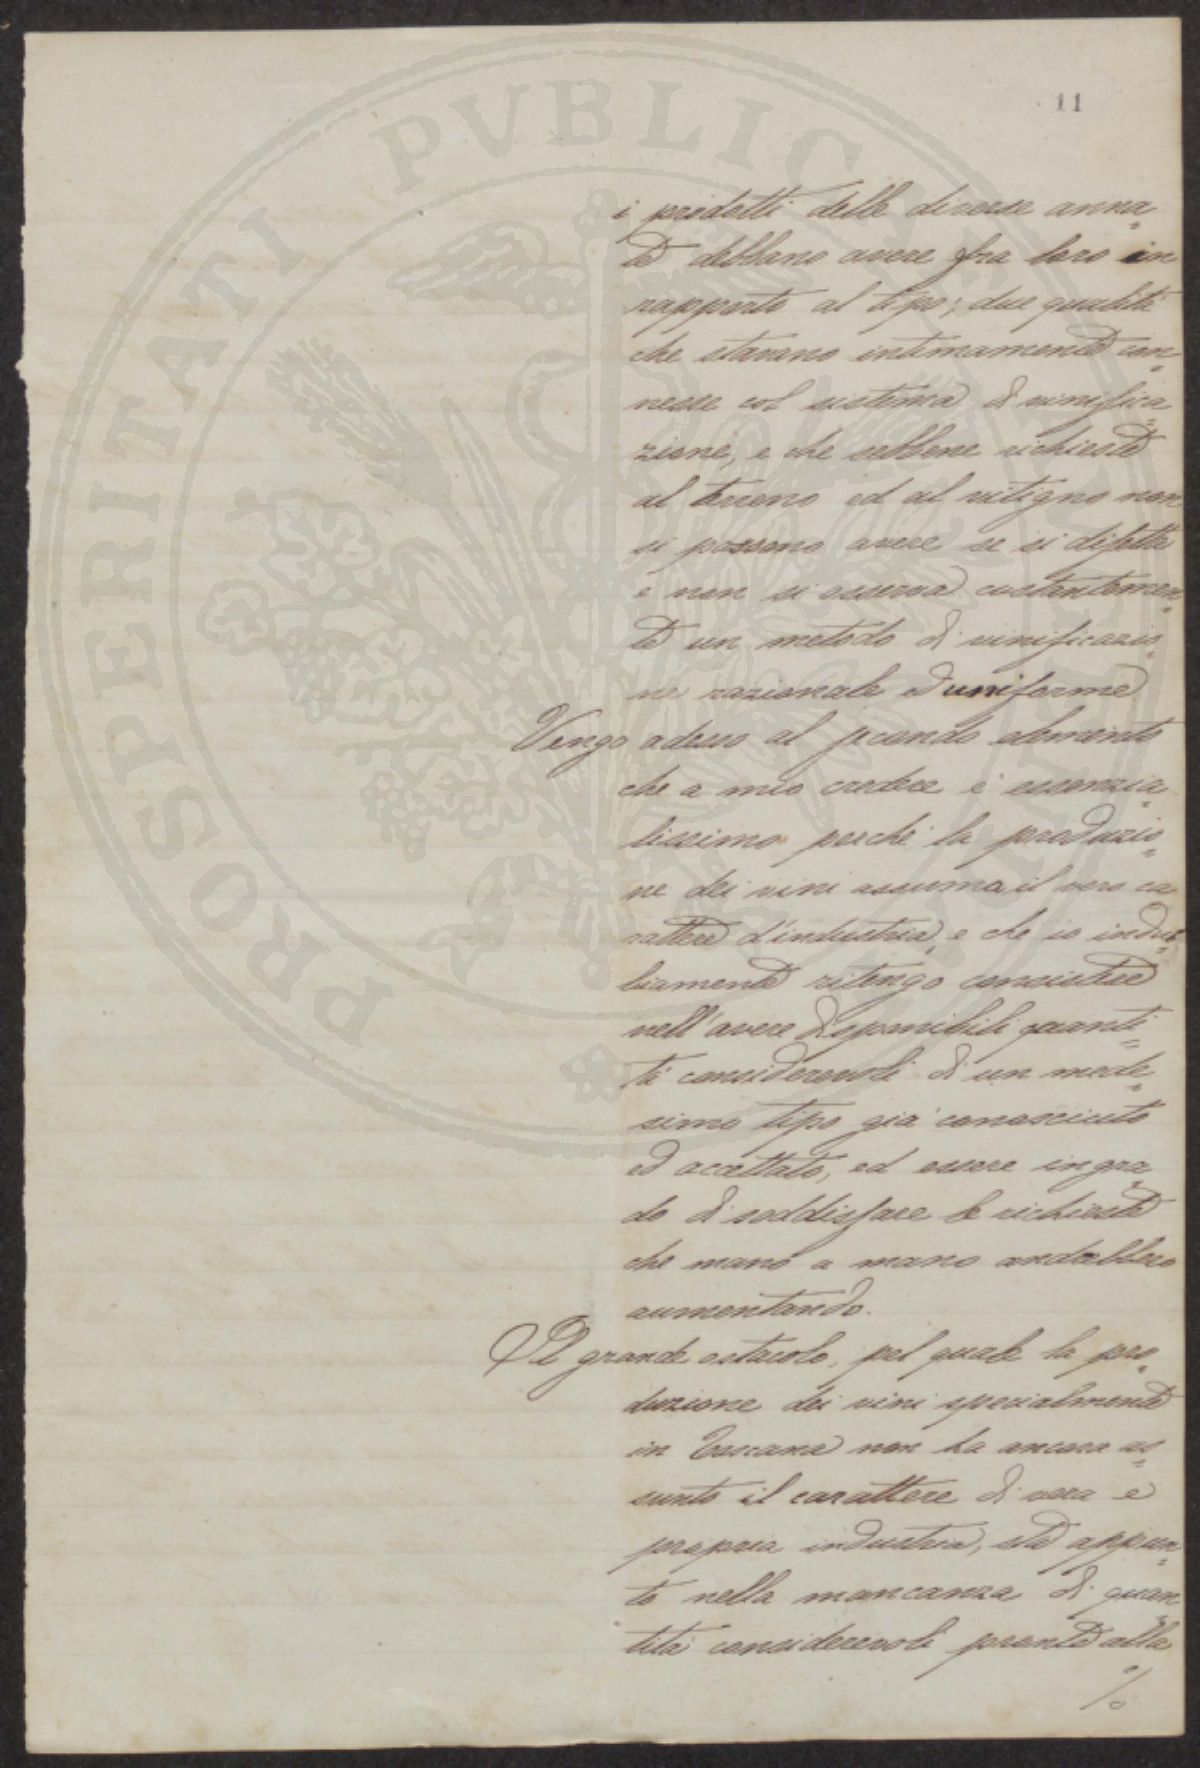 11
i prodotti delle diverse anna=
te debbano avere fra loro in
rapporto al tipo; due qualità
che staranno intimamente con=
nesse col sistema di vinifica=
zione, e che sebbene richieste
al terreno ed al vitigno non
si possono avere se si difetta
e non si osserva costantemen=
te un metodo di vinificazio=
ne razionale ed uniforme.
Vengo adesso al secondo elemento
che a mio credere è essenzia=
lissimo perché la produzio=
ne dei vini assuma il vero ca=
rattere d'industria, e che io indub=
biamente ritengo consistere
nell'avere disponibili quanti=
tà considerevoli di un mede=
simo tipo già conosciuto
ed accettato, ed essere in gra=
do di soddisfare le richieste
che mano a mano andrebbero
aumentando.
Il grande ostacolo, pel quale la pro=
duzione dei vini specialmente
in Toscana non ha ancora as=
sunto il carattere di vera e
propria industria, sta appun=
to nella mancanza di quan=
tità considerevoli pronte alla
%
PROSPERITATI PVBLICAE